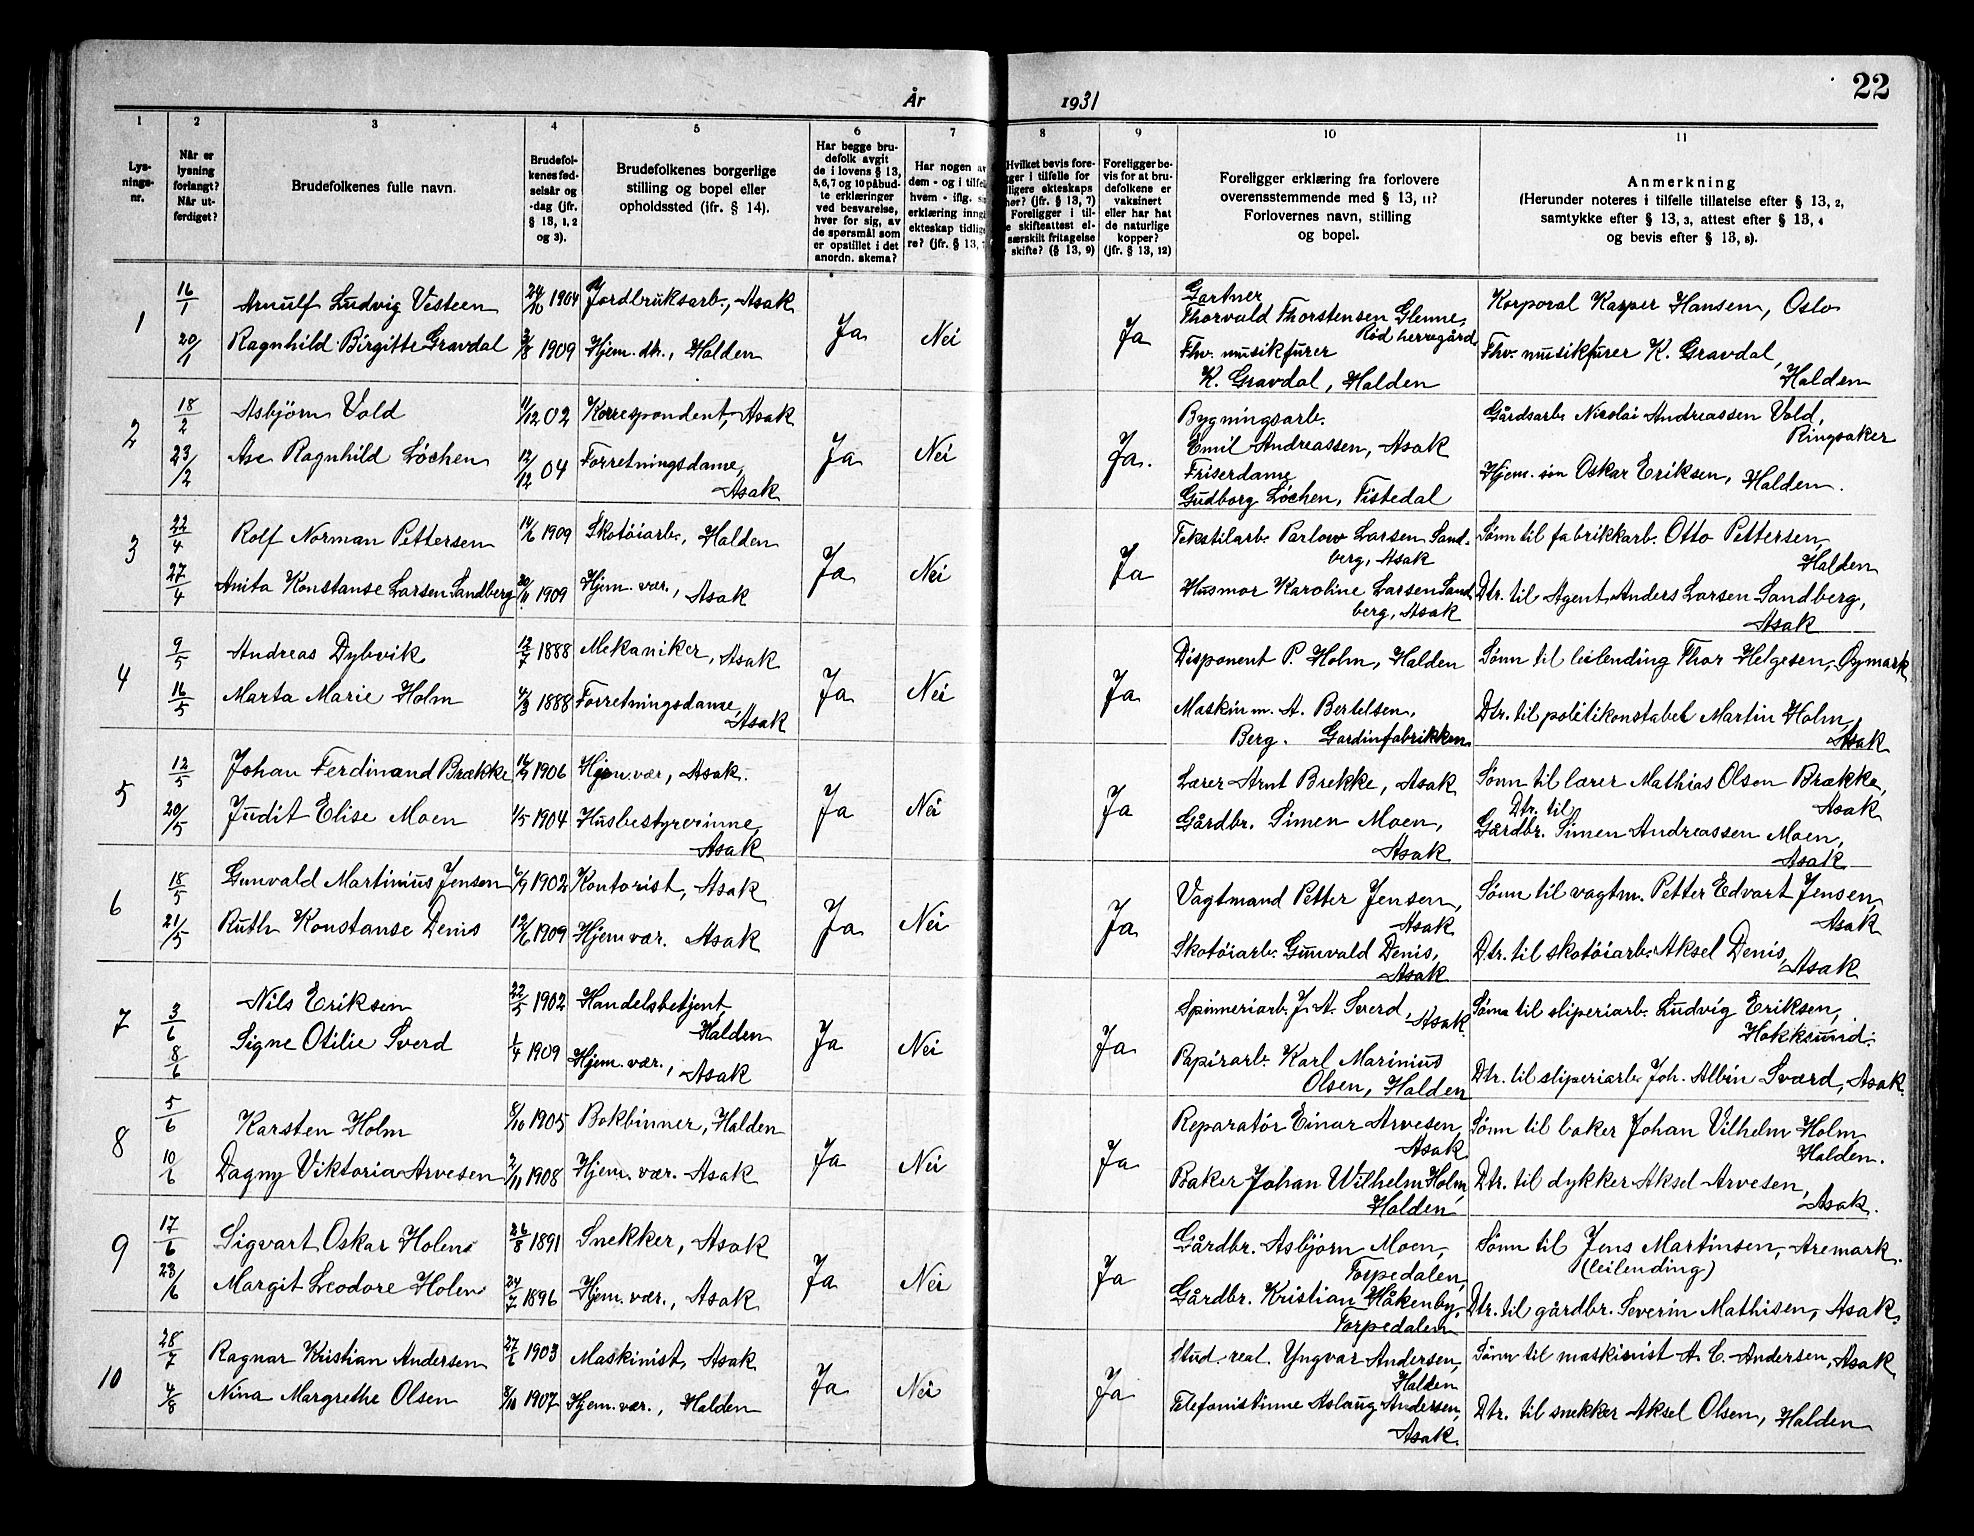 22
År 1931
1 2 3 4 5 6 7 8 9 10 11
Lys-
nings-
nr.
Når er
lysning
forlangt?
Når ut-
ferdiget?
Brudefolkenes fulle navn.
Brudefol-
kenes fød-
selsår og
-dag (jfr.
§ 13, 1, 2
og 3).
Brudefolkenes borgerlige
stilling og bopel eller
opholdssted (jfr. § 14).
Har begge bru-
defolk avgit
de i lovens § 13,
5, 6, 7 og 10 påbud-
te erklæringer
ved besvarelse,
hver for sig, av
de spørsmål som
er opstillet i det
anordn. skema?
Har nogen av
dem - og i tilfelle
hvem - iflg.
erklæring inng
ekteskap tidlig
re? (jfr. § 13,
Hvilket bevis fore-
gger i tilfelle for
ligere ekteskaps
her? (jfr. § 13, 7)
Foreligger i til-
e skifteattest el-
særskilt fritagelse
skifte? (§ 13, 9)
Foreligger be-
vis for at bru-
defolkene er
vaksinert
eller har hat
de naturlige
kopper?
(jfr. § 13, 12)
Foreligger erklæring fra forlovere
overensstemmende med § 13, 11?
Forlovernes navn, stilling
og bopel.
Anmerkning
(Herunder noteres i tilfelle tillatelse efter § 13, 2,
samtykke efter § 13, 3, attest efter § 13, 4
og bevis efter § 13, 8).
1
16/1 Arnulf Ludvig Vesteen 24/10 1904 Jordbruksarb., Asak
20/1 Ragnhild Birgitte Gravdal 3/8 1909 Hjem. dtr., Halden
Ja Nei Ja
Gartner
Thorvald Thorstensen Glenne,
Rød herregård
Fhv. musikfurer
K. Gravdal, Halden
Korporal Kasper Hansen, Oslo
Fhv. musikfurer K. Gravdal,
Halden
2
18/2 Asbjörn Vold 11/12 02 Korrespondent, Asak
23/2 Åse Ragnhild Löchen 12/12 04 Forretningsdame,
Asak
Ja Nei Ja.
Bygningsarb.
Emil Andreassen, Asak
Friserdame
Gudborg Löchen, Tistedal
Gårdsarb. Nicolai Andreassen Vold,
Ringsaker
Hjem. søn Oskar Eriksen, Halden.
3
22/4 Rolf Norman Pettersen 14/6 1909 Skotöiarb., Halden
27/4 Anita Konstanse Larsen Sandberg 20/11 1909 Hjem. vær., Asak
Ja Nei Ja
Tekstilarb. Parlow Larsen Sand-
berg, Asak
Husmor Karoline Larsen Sand
berg, Asak
Sönn til fabrikkarb. Otto Pettersen,
Halden
Dtr. til Agent Anders Larsen Sandberg,
Asak
4
9/5 Andreas Dybvik 12/7 1888 Mekaniker, Asak
16/5 Marta Marie Holm 4/3 1888 Forretningsdame,
Asak
Ja Nei Ja
Disponent P. Holm, Halden
Maskinm. A. Bertelsen,
Berg. Gardinfabrikken
Sönn til leilending Thor Helgesen, Öymark
Dtr. til politikonstabel Martin Holm,
Asak
5
12/5 Johan Ferdinand Brække 16/9 1906 Hjem vær, Asak.
20/5 Judit Elise Moen 1/5 1904 Husbestyrerinne,
Asak
Ja Nei Ja
Lærer Arnt Brekke, Asak
Gårdbr. Simen Moen,
Asak
Sönn til lærer Mathias Olsen Brække,
Asak
Dtr. til
Gårdbr. Simen Andreassen Moen,
Asak
6
18/5 Gunvald Martinius Jensen 6/9 1902 Kontorist, Asak
21/5 Ruth Konstanse Denis 12/6 1909 Hjem vær. Asak
Ja Nei Ja
Vagtmand Petter Jensen,
Asak
Skotöiarb. Gunvald Denis,
Asak
Sönn til vagtm. Petter Edvart Jensen,
Asak
Dtr. til skotöiarb. Aksel Denis,
Asak
7
3/6 Nils Eriksen 22/5 1902 Handelsbetjent,
Halden
8/6 Signe Otilie Sverd 1/4 1909 Hjem. vær., Asak
Ja Nei Ja
Spinneriarb. J. A. Sverd, Asak.
Papirarb. Karl Marinius
Olsen, Halden
Sönn til sliperiarb. Ludvig Eriksen,
Hokksund.
Dtr. til sliperiarb. Joh. Albin Sværd, Asak.
8
5/6 Karsten Holm 8/10 1905 Bokbinner, Halden
10/6 Dagny Viktoria Arvesen 2/11 1908 Hjem. vær. Asak
Ja Nei Ja
Reparatör Einar Arvesen,
Asak
Baker Johan Wilhelm Holm,
Halden
Sönn til baker Johan Vilhelm Holm
Halden.
Dtr. til dykker Aksel Arvesen,
Asak.
9
17/6 Sigvart Oskar Holen 26/8 1891 Snekker, Asak
23/6 Margit Leodore Holen 24/7 1896 Hjem. vær., Asak
Ja Nei Ja
Gårdbr. Asbjörn Moen,
Torpedalen,
Gårdbr. Kristian Håkenby,
Torpedalen
Sönn til Jens Martinsen, Aremark.
(leilending)
Dtr. til gårdbr. Severin Mathisen, Asak.
10
28/7 Ragnar Kristian Andersen 27/6 1903 Maskinist, Asak
4/8 Nina Margrethe Olsen 8/10 1907 Hjem. vær., Halden
Ja Nei Ja
Stud. real. Yngvar Andersen,
Halden
Telefonistinne Aslaug Andersen,
Asak.
Sönn til maskinist A. C. Andersen, Asak
Dtr. til snekker Aksel Olsen, Halden